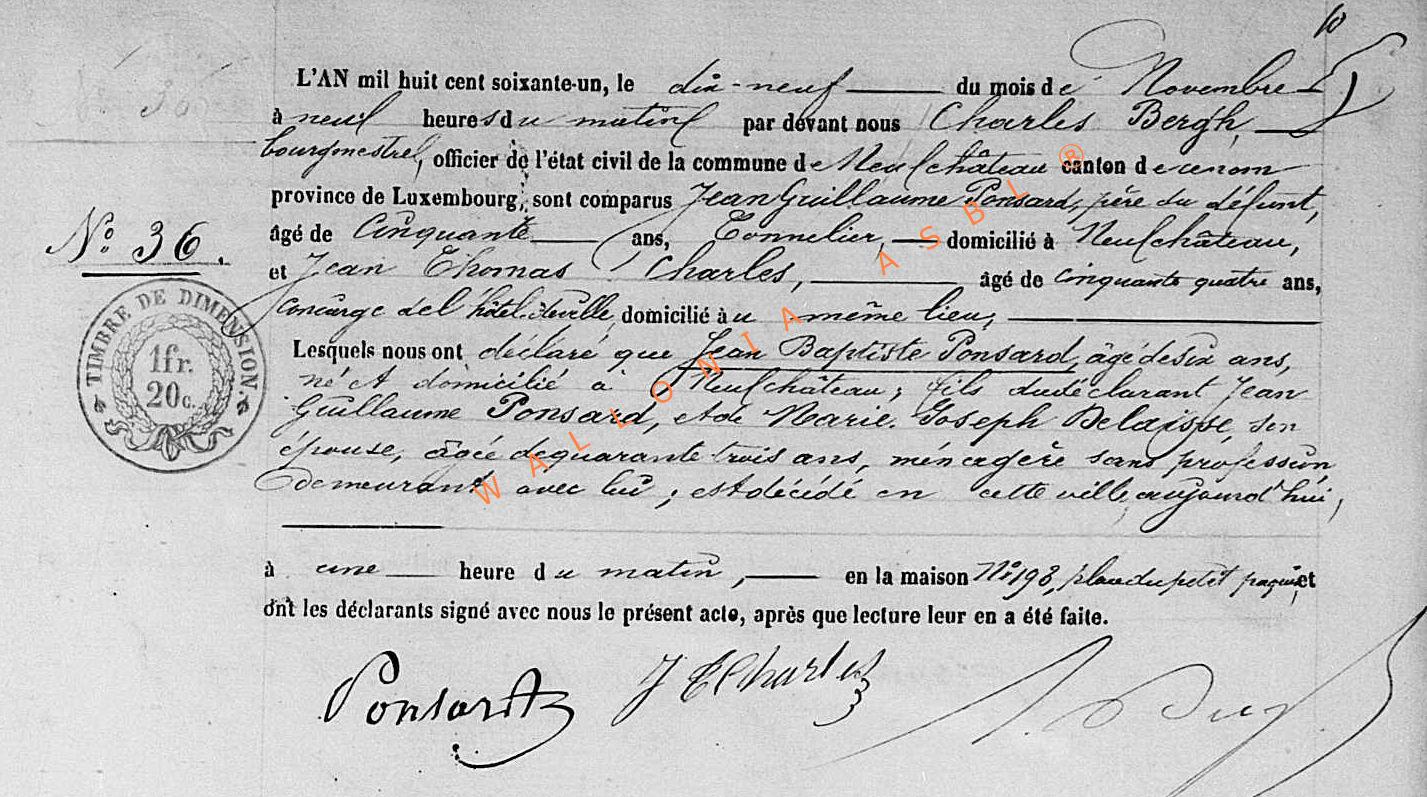 10
L'AN mil huit cent soixante-un, le dix-neuf du mois de Novembre
à neuf heures du matin par devant nous Charles Bergh,
bourgmestre, officier de l'état civil de la commune de Neufchâteau canton de ce nom
province de Luxembourg, sont comparus Jean Guillaume Ponsard, père du défunt,
No. 36.
âgé de Cinquante ans, Tonnelier, domicilié à Neufchâteau,
et Jean Thomas Charles, âgé de cinquante quatre ans,
concierge de l'hôtel de ville, domicilié au même lieu,
TIMBRE DE DIMENSION
1 fr.
20 c.
Lesquels nous ont déclaré que Jean Baptiste Ponsard, âgé de six ans,
né et domicilié à Neufchâteau, fils du déclarant Jean
Guillaume Ponsard, et de Marie Joseph Delaisse, son
épouse, âgée de quarante trois ans, ménagère sans profession
demeurant avec lui; est décédé en cette ville, aujourd'hui,
à une heure du matin, en la maison No 193, place du petit paquis, et
ont les déclarants signé avec nous le présent acte, après que lecture leur en a été faite.
Ponsard J T Charles
WALLONIA ASBL ®